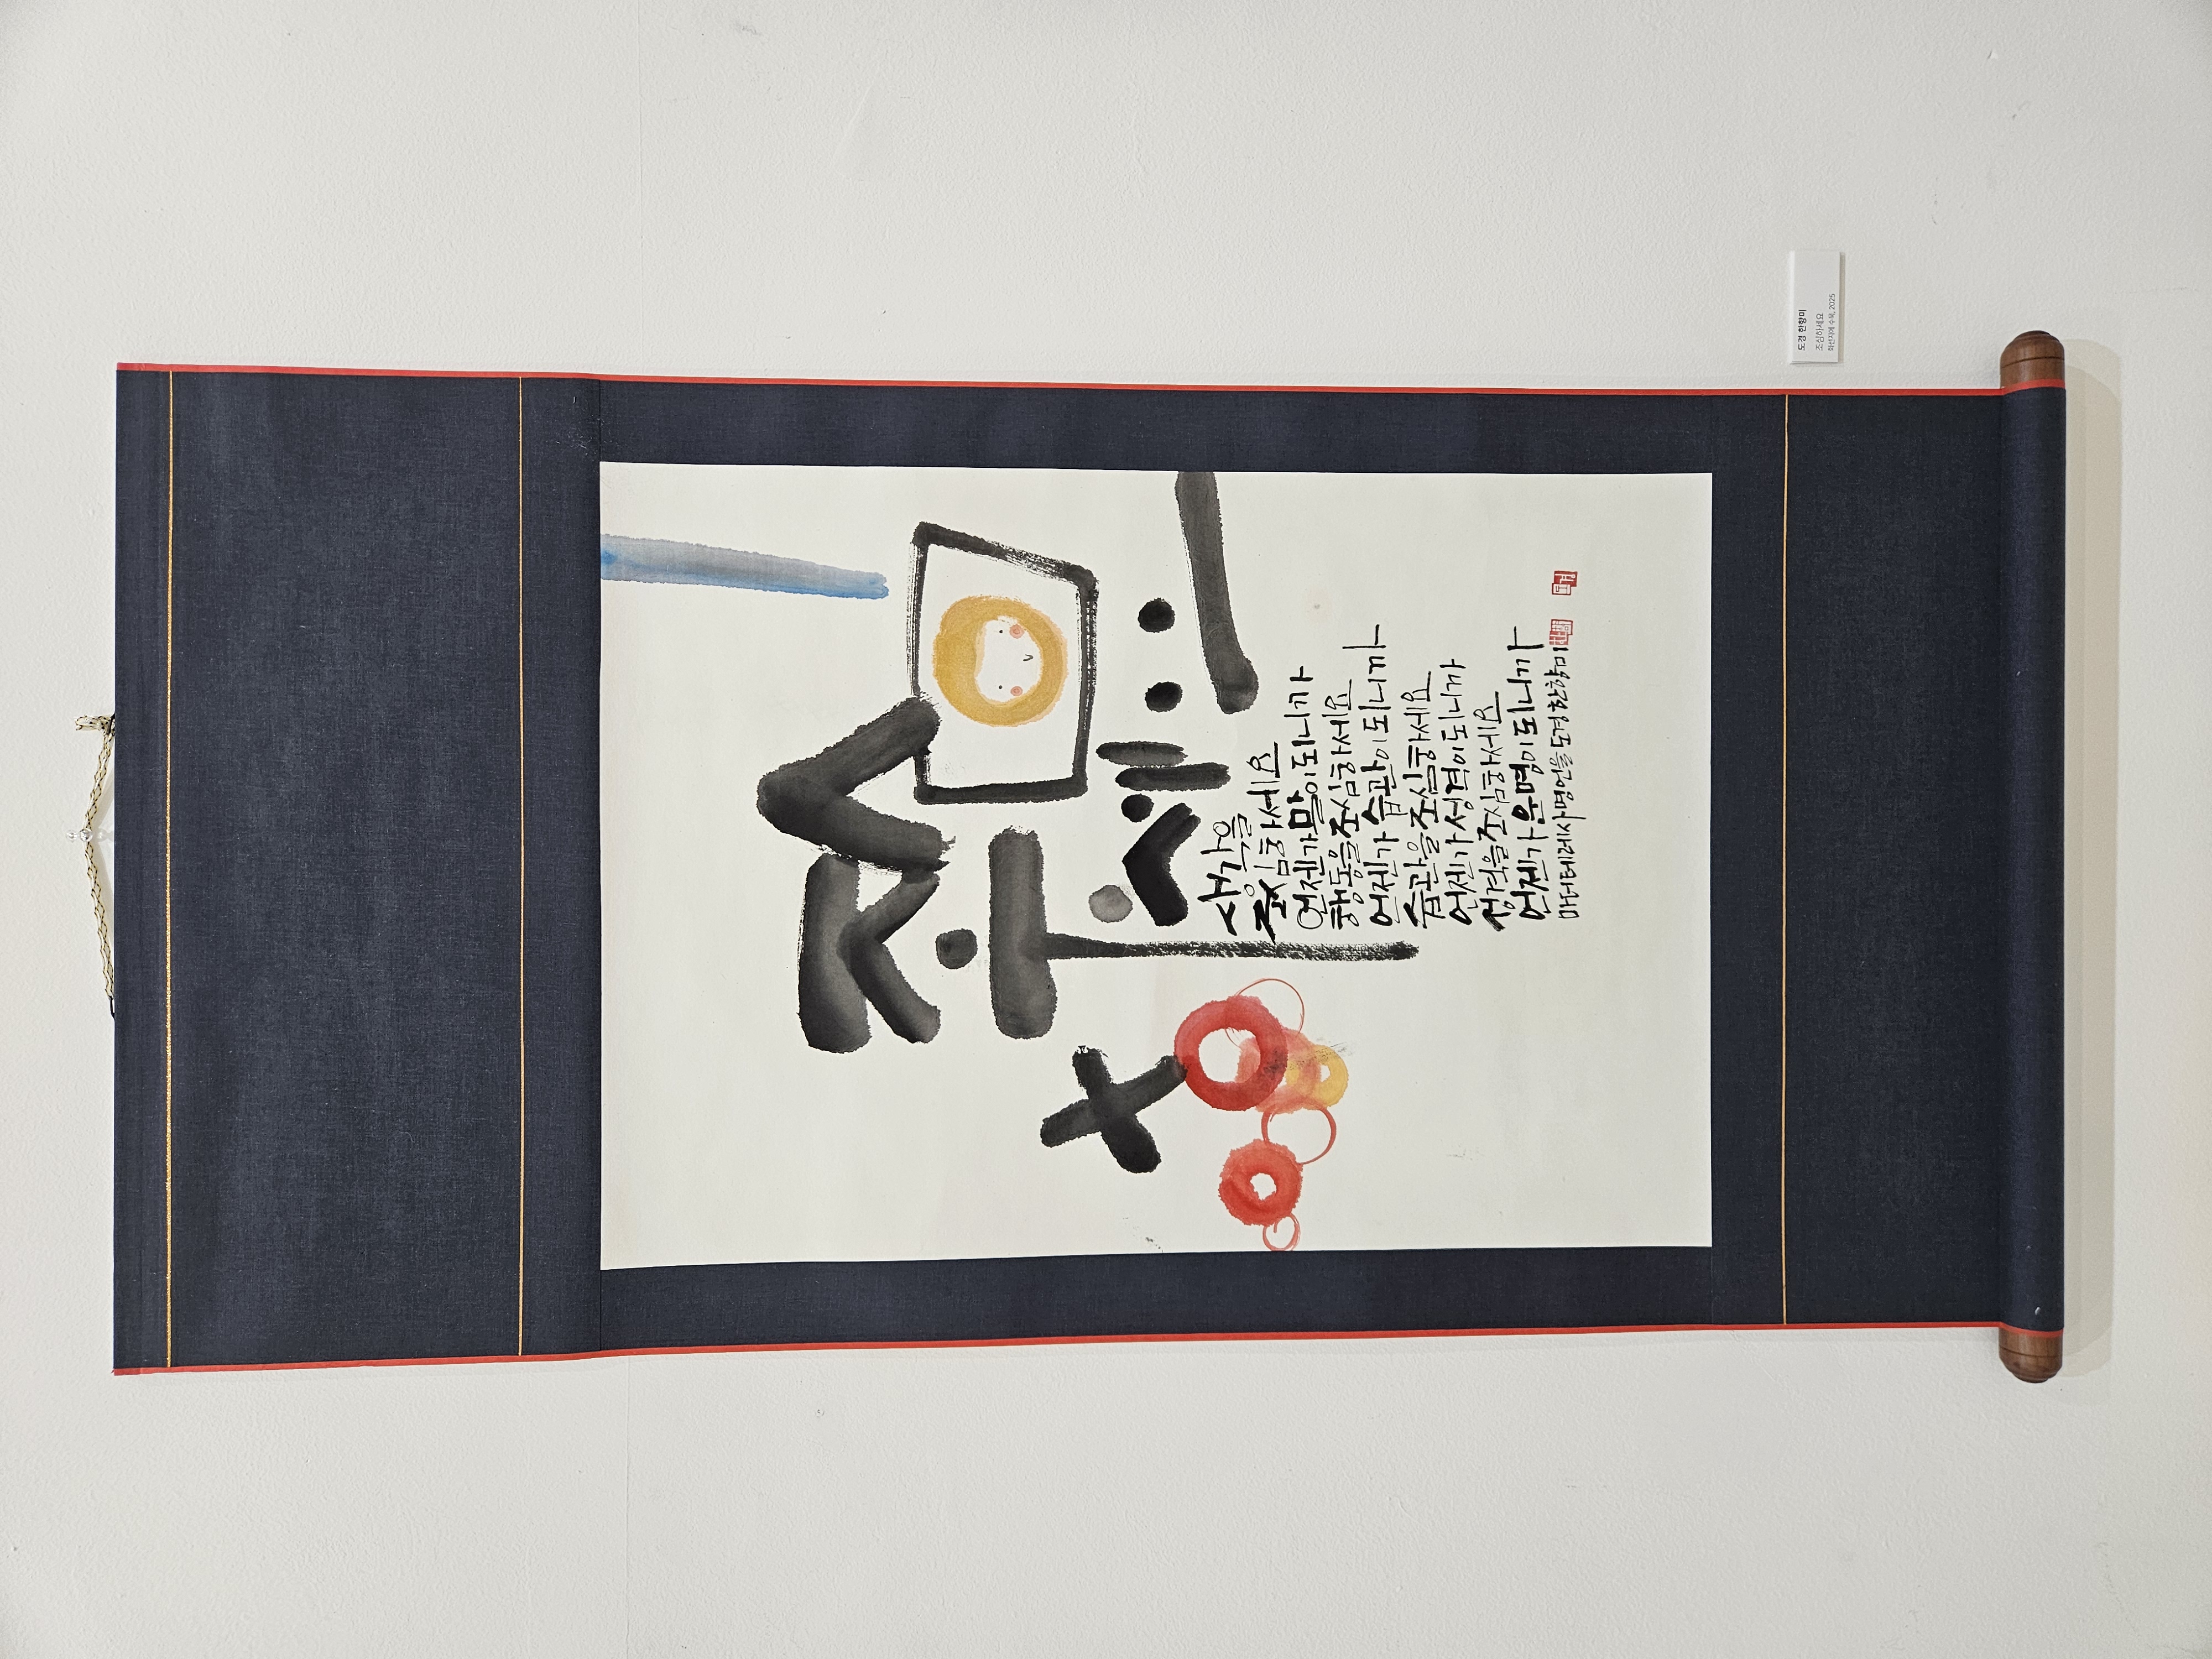 조심하세요
생각을
조심하세요
언젠가 말이 되니까
행동을 조심하세요
언젠가 습관이 되니까
습관을 조심하세요
언젠가 성격이 되니까
성격을 조심하세요
언젠가 운명이 되니까
마더 테레사 명언을 도경 한향미
도경
도경 한향미
조심하세요
화선지에 수묵, 2025